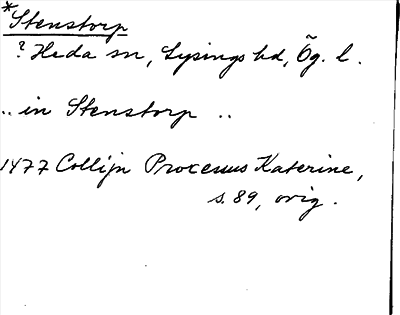 *Stenstorp
? Heda sn, Lysings hd, Ög. l.
.. in Stenstorp ..
1477 Collijn Processus Katerine,
s. 89, orig.